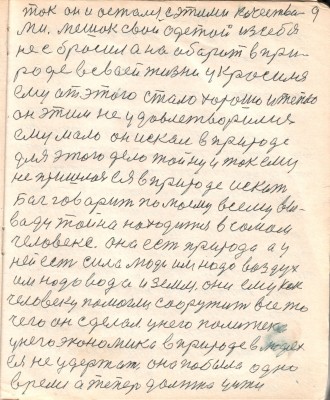 9
ток он и остался с этими качества-
ми. мешок свой одетой из себя
не сбросил а на обарот в при-
роде в сваей жизни укросился
ему от этого стало хорошо и тепло
он этим не удовлетворился
ему мало он искал в природе
для этого дело тойну и ток ему
не пришлося в природе искат
Баг говарит по моему всему вы-
ваду тойна находится в самом
человеке. она ест природа а у
ней ест сила моды им надо воздух
им надо вода и земля, они ему как
человеку помогли соорудит все то
чего он сделал у него политека
у него экономика в природе в людех
ся не удержат. она была одно
время а тепер должна уйти